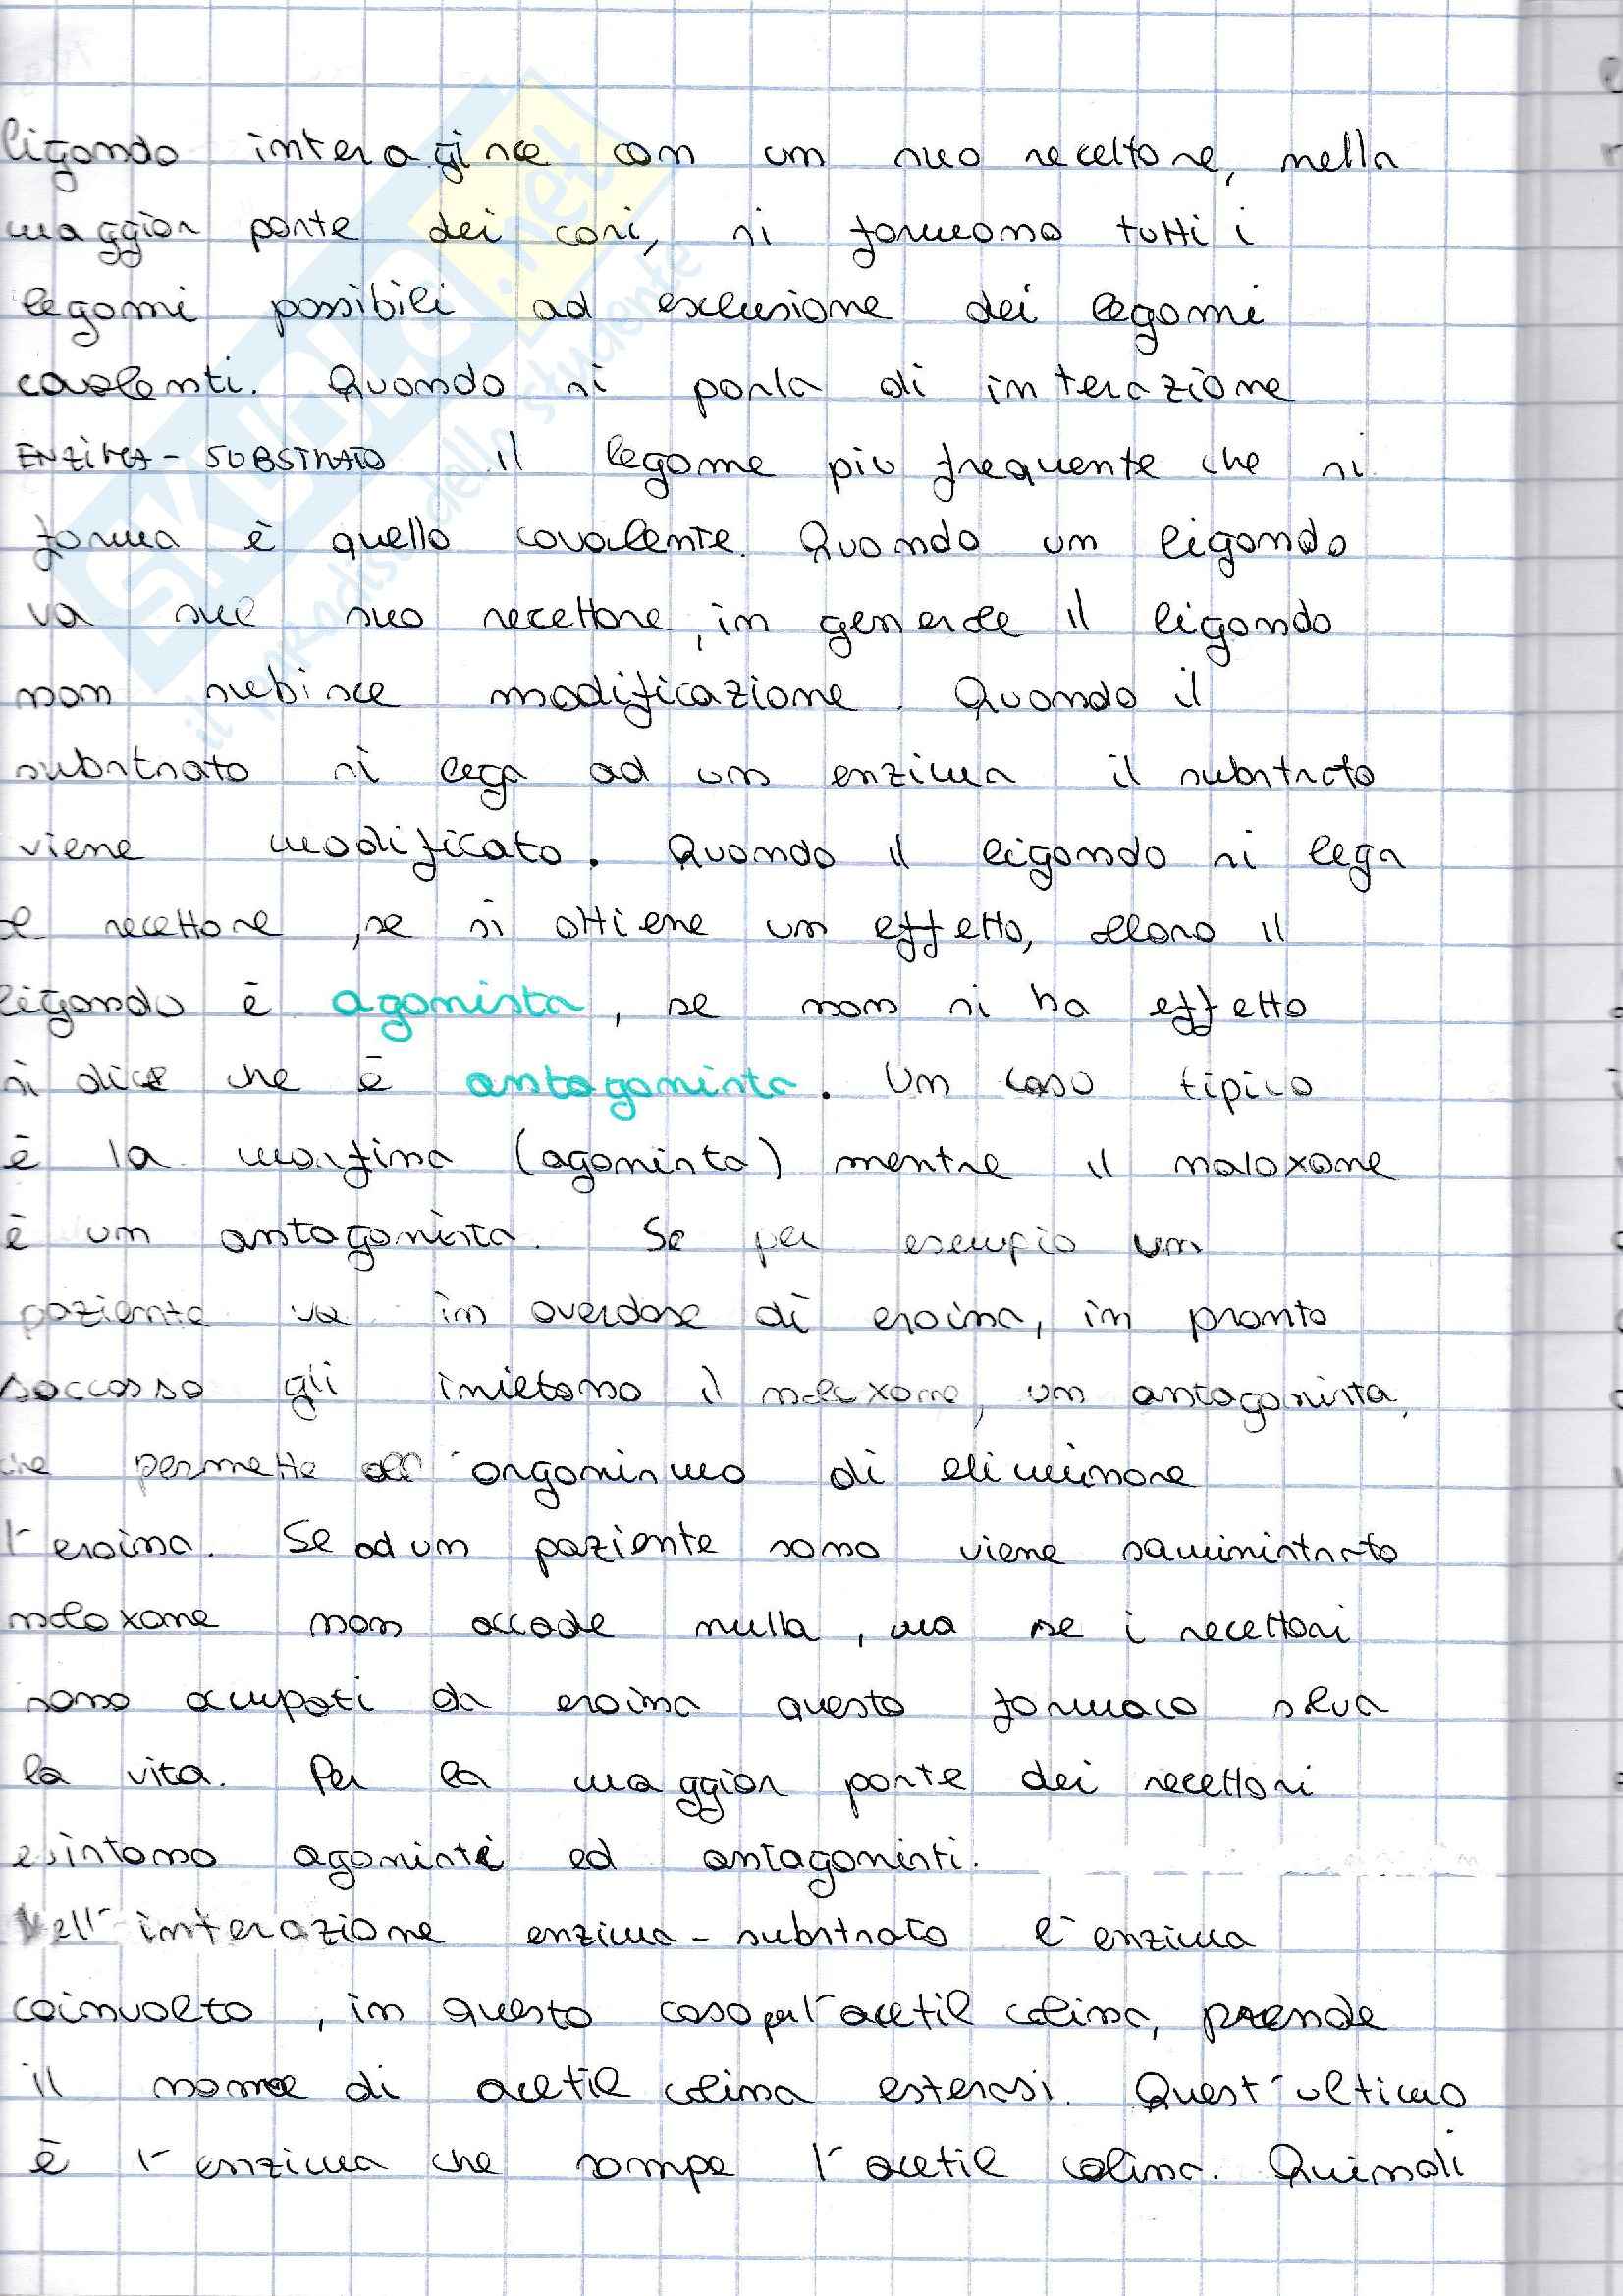 ligando interagisce con un suo recettore, nella
maggior parte dei casi, si formano tutti i
legami possibili ad esclusione dei legami
covalenti. Quando si parla di interazione
ENZIMA - SUBSTRATO il legame più frequente che si
forma è quello covalente. Quando un ligando
va sul suo recettore, in generale il ligando
non subisce modificazione. Quando il
substrato si lega ad un enzima il substrato
viene modificato. Quando il ligando si lega
al recettore, se si ottiene un effetto, allora il
ligando è agonista, se non si ha effetto
si dice che è antagonista. Un caso tipico
è la morfina (agonista) mentre il naloxone
è un antagonista. Se per esempio un
paziente va in overdose di eroina, in pronto
soccorso gli iniettano il naloxone, un antagonista,
che permette all'organismo di eliminare
l'eroina. Se ad un paziente sano viene somministrato
naloxone non accade nulla, ma se i recettori
sono occupati da eroina questo farmaco salva
la vita. Per la maggior parte dei recettori
esistono agonisti ed antagonisti.
Nell'interazione enzima - substrato l'enzima
coinvolto, in questo caso per l'acetil colina, prende
il nome di acetil colina esterasi. Quest'ultimo
è l'enzima che rompe l'acetil colina. Quindi
SKUOLA.net
il paradiso dello studente